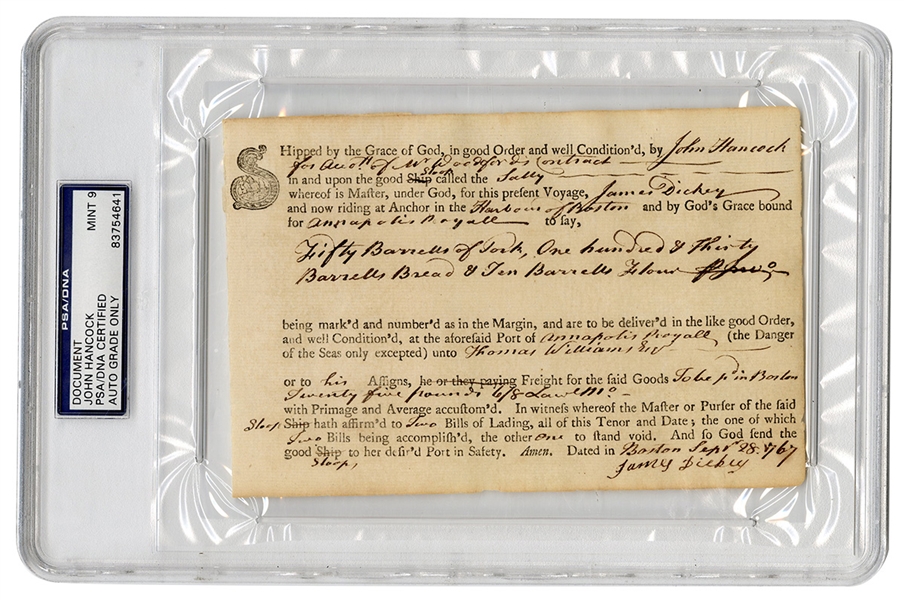 PSA/DNA
DOCUMENT
JOHN HANCOCK
PSA/DNA CERTIFIED
AUTO GRADE ONLY
MINT 9
83754641
SHipped by the Grace of God, in good Order and well Condition'd, by John Hancock
for Accott. of Mr. Woodfords Contract
Sloop
In and upon the good Ship called the Sally
whereof is Master, under God, for this present Voyage, James Dickey
and now riding at Anchor in the Harbour of Boston and by God's Grace bound
for Annapolis Royall to say,
Fifty Barrells of Pork, One hundred & thirty
Barrells Bread & Ten Barrells Flour
being mark'd and number'd as in the Margin, and are to be deliver'd in the like good Order,
and well Condition'd, at the aforesaid Port of Annapolis Royall, (the Danger
of the Seas only excepted) unto Thomas Williams Esq
or to his Assigns, he or they paying Freight for the said Goods To be pd in Boston
Twenty five pounds 6/8 Lawll Mo.
with Primage and Average accustom'd. In witness whereof the Master or Purser of the said
Sloop Ship hath affirm'd to Two Bills of Lading, all of this Tenor and Date; the one of which
Two Bills being accomplish'd, the other One to stand void. And so God send the
good Ship to her desir'd Port in Safety. Amen. Dated in Boston Sepr. 28. 1767
Sloop,
James Dickey